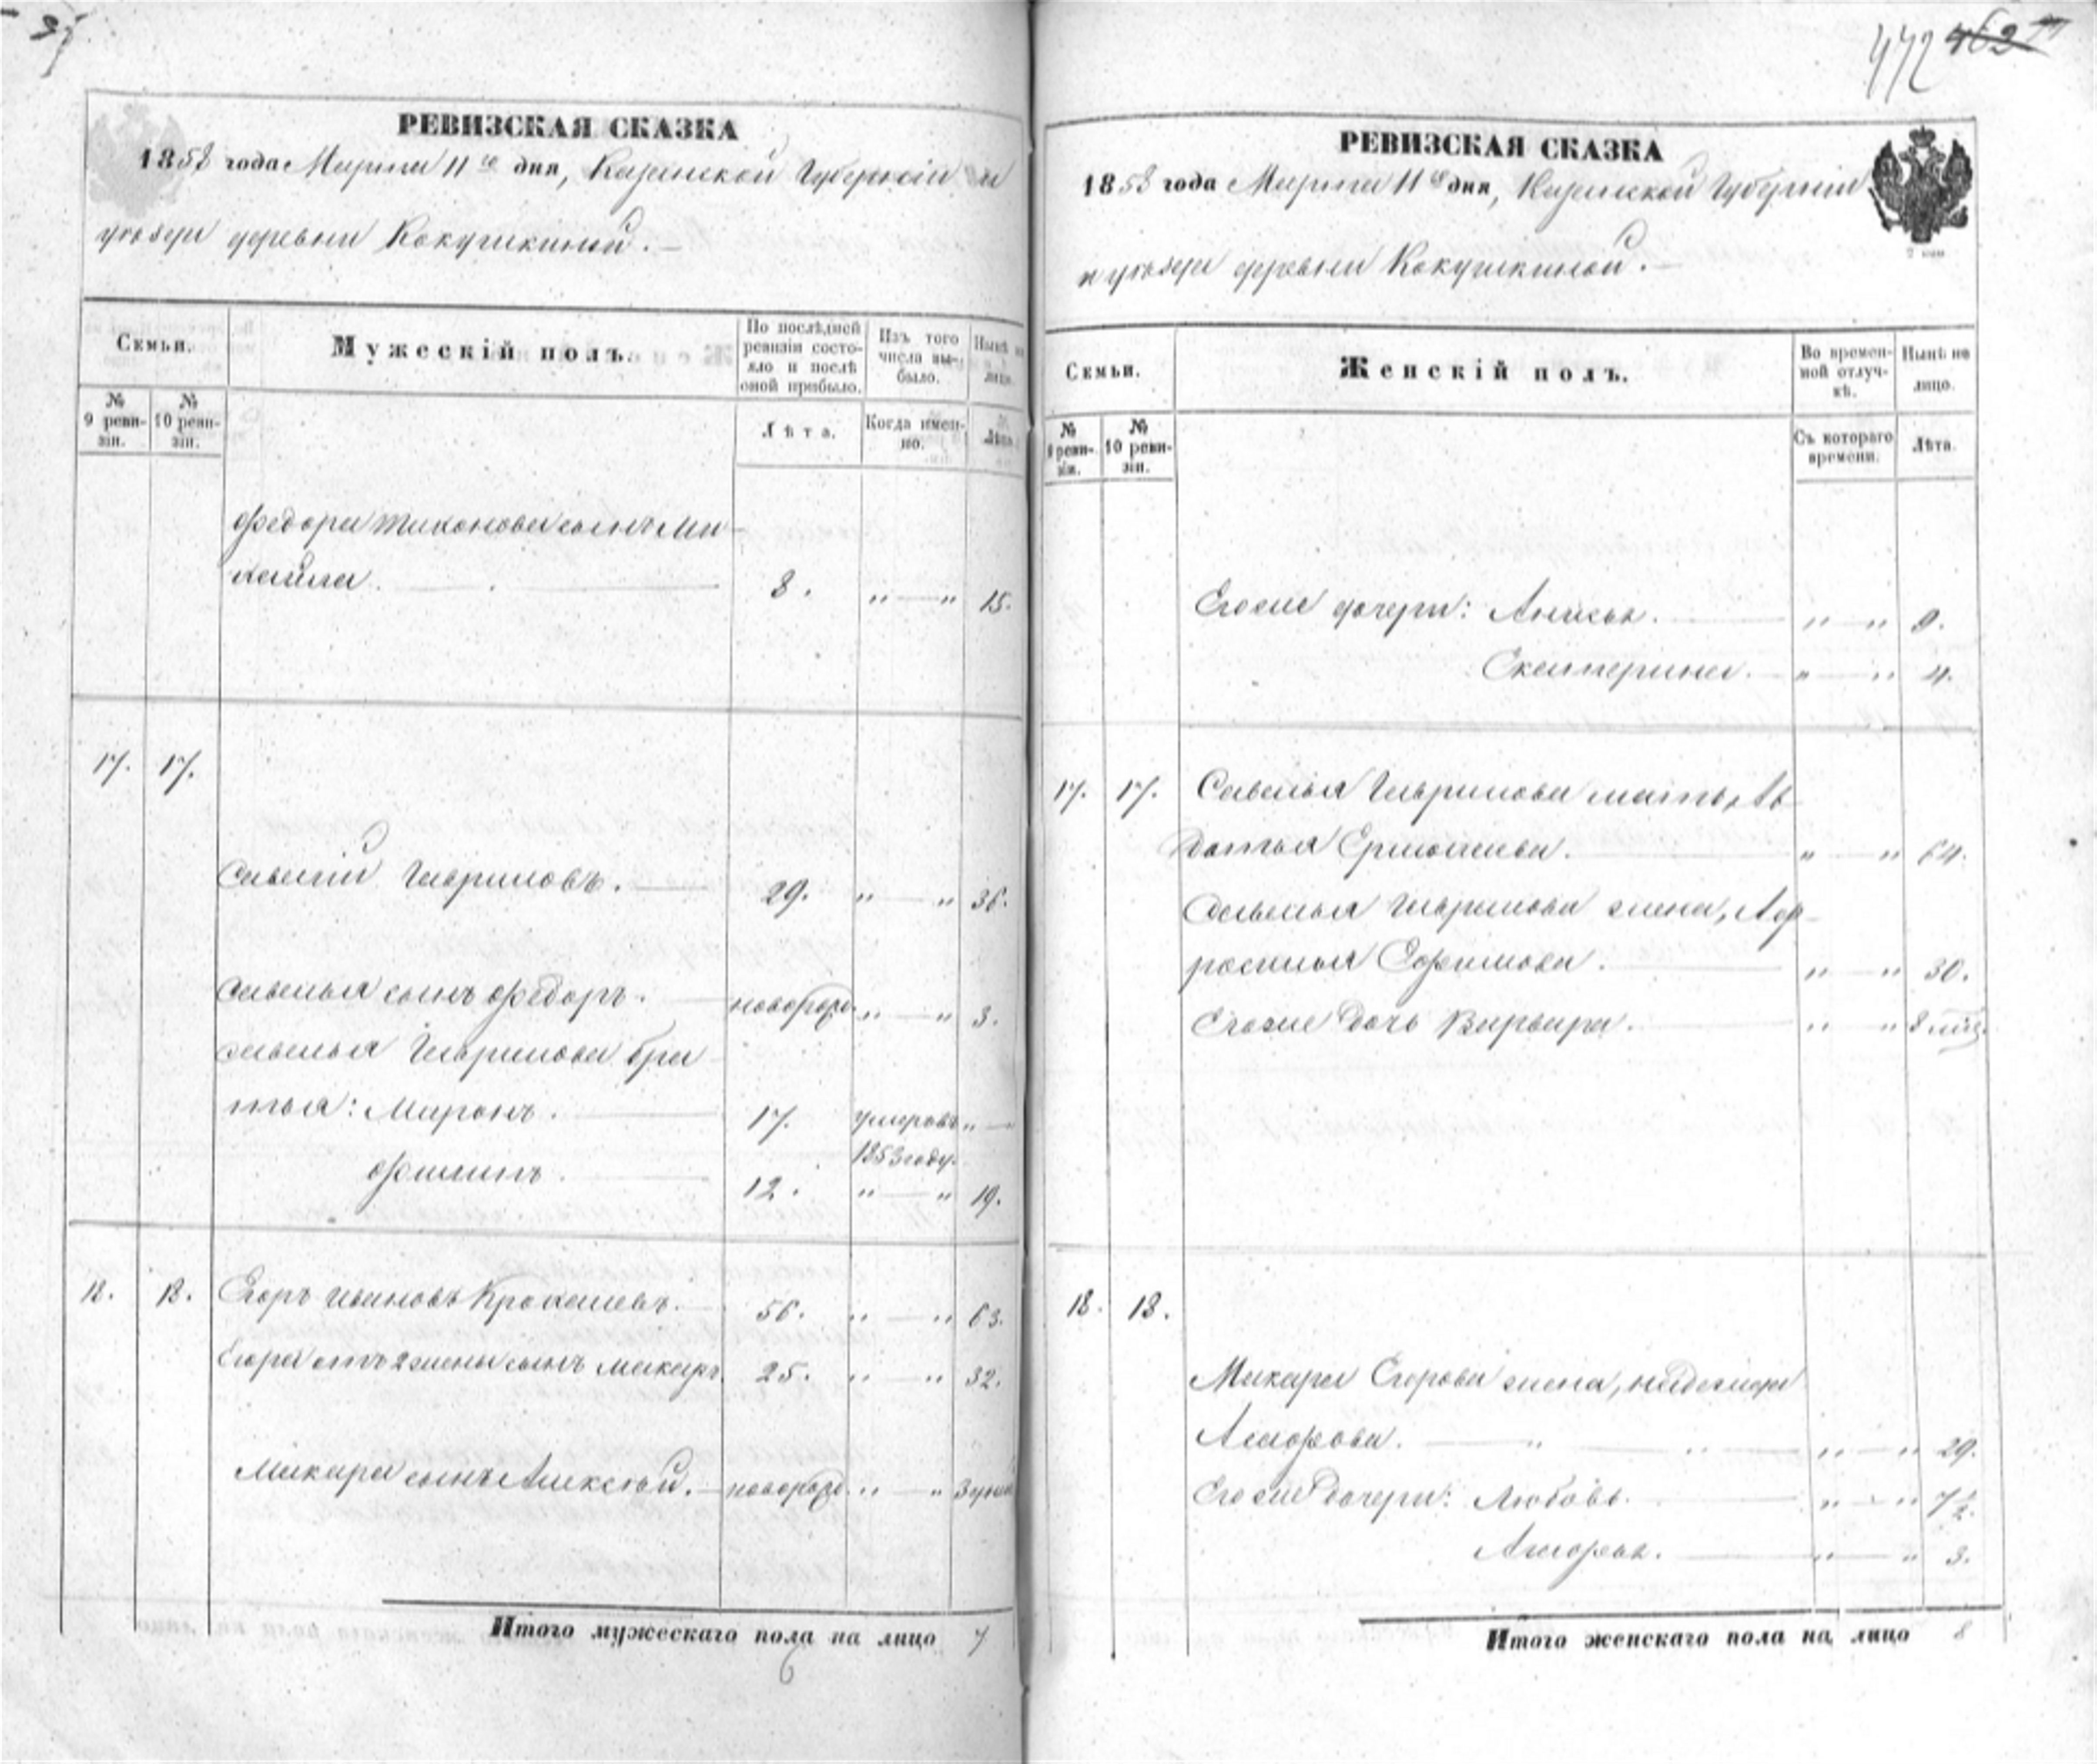 35
РЕВИЗСКАЯ СКАЗКА
1858 года Марта 11го дня, Казанской Губернiи и
уѣзда деревни Кокушкиной.
Семьи.
Мужескiй полъ.
По послѣдней ревизiи состояло и послѣ оной прибыло.
Изъ того числа выбыло.
Нынѣ на лицо.
№ 9 ревизiи.
№ 10 ревизiи.
Лѣта.
Когда именно.
Лѣта.
Федора Тихонова сынъ Ми-
хаила. 8. „ — „ 15.
17. 17.
Савелiй Гавриловъ. 29. „ — „ 36.
Савелья сынъ Федоръ. новорожд. „ — „ 3.
Савелья Гаврилова бра-
тья: Миронъ. 17. умеръ въ „ — „
1853 году.
Филипъ. 12. „ — „ 19.
18. 18. Егоръ Ивановъ 56. „ — „ 63.
Егора отъ 2 жены сынъ Макаръ. 25. „ — „ 32.
Макара сынъ Алексѣй. новорожд. „ — „
Итого мужескаго пола на лицо 7
6
472 462
РЕВИЗСКАЯ СКАЗКА
1858 года Марта 11го дня, Казанской Губернiи
и уѣзда деревни Кокушкиной.
2 коп.
Семьи.
Женскiй полъ.
Во временной отлучкѣ.
Нынѣ на лицо.
№ 9 ревизiи.
№ 10 ревизiи.
Съ котораго времени.
Лѣта.
Егоже дочери: Анисья. „ — „ 9.
Екатерина. „ — „ 4.
17. 17. Савелья Гаврилова мать, Ав-
дотья Ермолаева. „ — „ 64.
Савелья Гаврилова жена, Аф-
росинья Ефимова. „ — „ 30.
Егоже дочь Варвара. „ — „ 8 мѣс.
18. 18.
Макара Егорова жена, Надежда
„ — „ 29.
Егоже дочери: Любовь. „ — „ 7 1/2.
„ — „ 3.
Итого женскаго пола на лицо 8